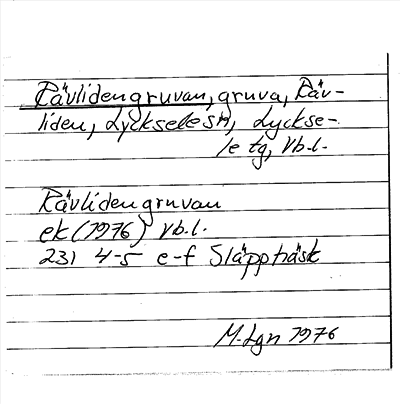 Rävlidengruvan, gruva, Räv-
liden, Lycksele sn, Lyckse-
le tg, Vb.l.
Rävlidengruvan
ek (1976) Vb.l.
231 4-5 e-f Släppträsk
M.Lgn 1976